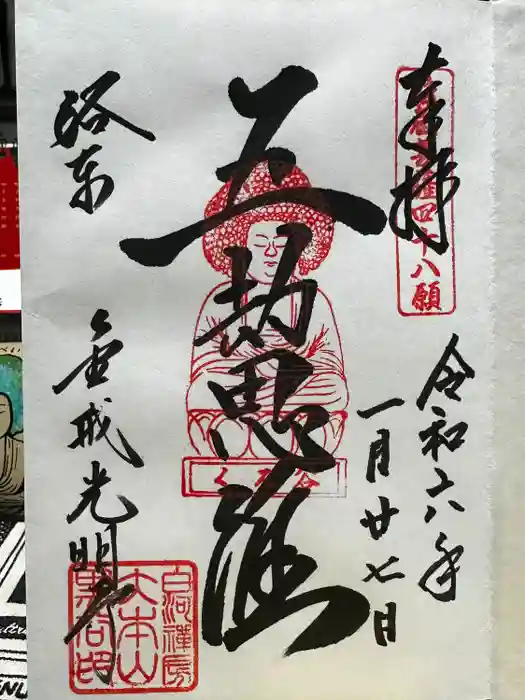 奉拝
四十八願
令和六年
一月廿七日
五劫思惟
くろ谷
洛東
金戒光明寺
白河禅房
大本山